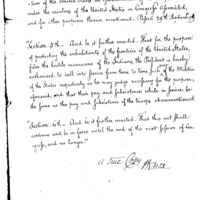 under the resolves of the United States in Congress Assembled,
and for other purposes therein mentioned. Passed 29th
Section 5th. And be it further enacted. That for the purpose
of protecting the inhabitants of the frontiers of the United States,
from the hostile incursions of the Indians, the President is hereby
authorized to call into service from time to time, such of the Militia
of the States respectively as he may judge necessary for the purpose
aforesaid, and that their pay and subsistence while in service, be
the same as the pay and subsistence of the troops abovementioned
Section 6th. And be it further enacted. That this act shall
continue and be in force until the end of the next session of Con-
gress, and no longer."
a true Copy
H Knox